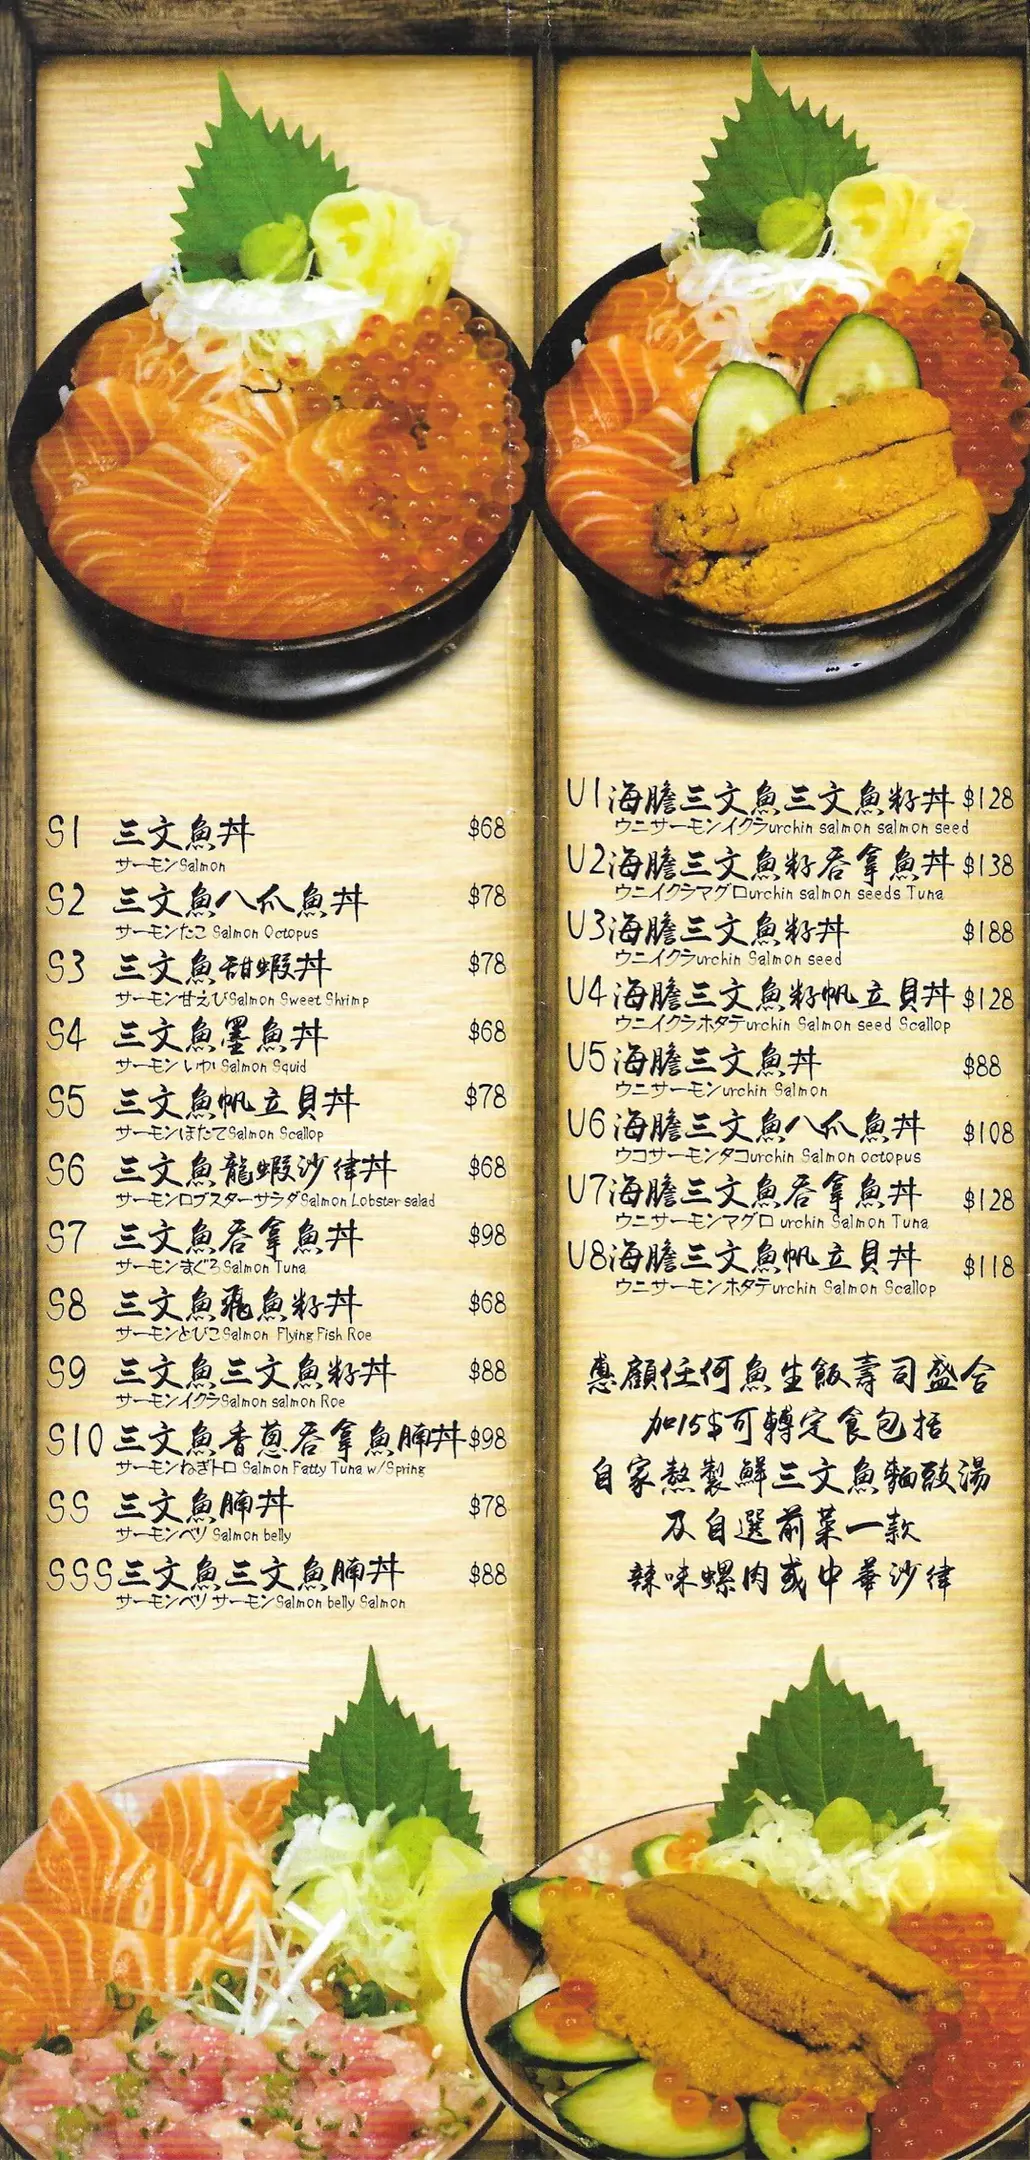 S1 三文魚丼 $68
サーモンSalmon
S2 三文魚八爪魚丼 $78
サーモンたこ Salmon Octopus
S3 三文魚甜蝦丼 $78
サーモン甘えびSalmon Sweet Shrimp
S4 三文魚墨魚丼 $68
サーモン いか Salmon Squid
S5 三文魚帆立貝丼 $78
サーモンほたてSalmon Scallop
S6 三文魚龍蝦沙律丼 $68
サーモンロブスターサラダSalmon Lobster salad
S7 三文魚吞拿魚丼 $98
サーモンまぐろSalmon Tuna
S8 三文魚飛魚籽丼 $68
サーモンとびこSalmon Flying Fish Roe
S9 三文魚三文魚籽丼 $88
サーモンイクラSalmon salmon Roe
S10 三文魚香蔥吞拿魚腩丼 $98
サーモンねぎトロ Salmon Fatty Tuna w/Spring
SS 三文魚腩丼 $78
サーモンベツ Salmon belly
SSS 三文魚三文魚腩丼 $88
サーモンベツ サーモンSalmon belly Salmon
U1 海膽三文魚三文魚籽丼 $128
ウニサーモンイクラurchin salmon salmon seed
U2 海膽三文魚籽吞拿魚丼 $138
ウニイクラマグロurchin salmon seeds Tuna
U3 海膽三文魚籽丼 $188
ウニイクラurchin Salmon seed
U4 海膽三文魚籽帆立貝丼 $128
ウニイクラホタテurchin Salmon seed Scallop
U5 海膽三文魚丼 $88
ウニサーモンurchin Salmon
U6 海膽三文魚八爪魚丼 $108
ウコサーモンタコurchin Salmon octopus
U7 海膽三文魚吞拿魚丼 $128
ウニサーモンマグロ urchin Salmon Tuna
U8 海膽三文魚帆立貝丼 $118
ウニサーモンホタテurchin Salmon Scallop
惠顧任何魚生飯壽司盛合
加15$可轉定食包括
自家熬製鮮三文魚麵豉湯
及自選前菜一款
辣味螺肉或中華沙律